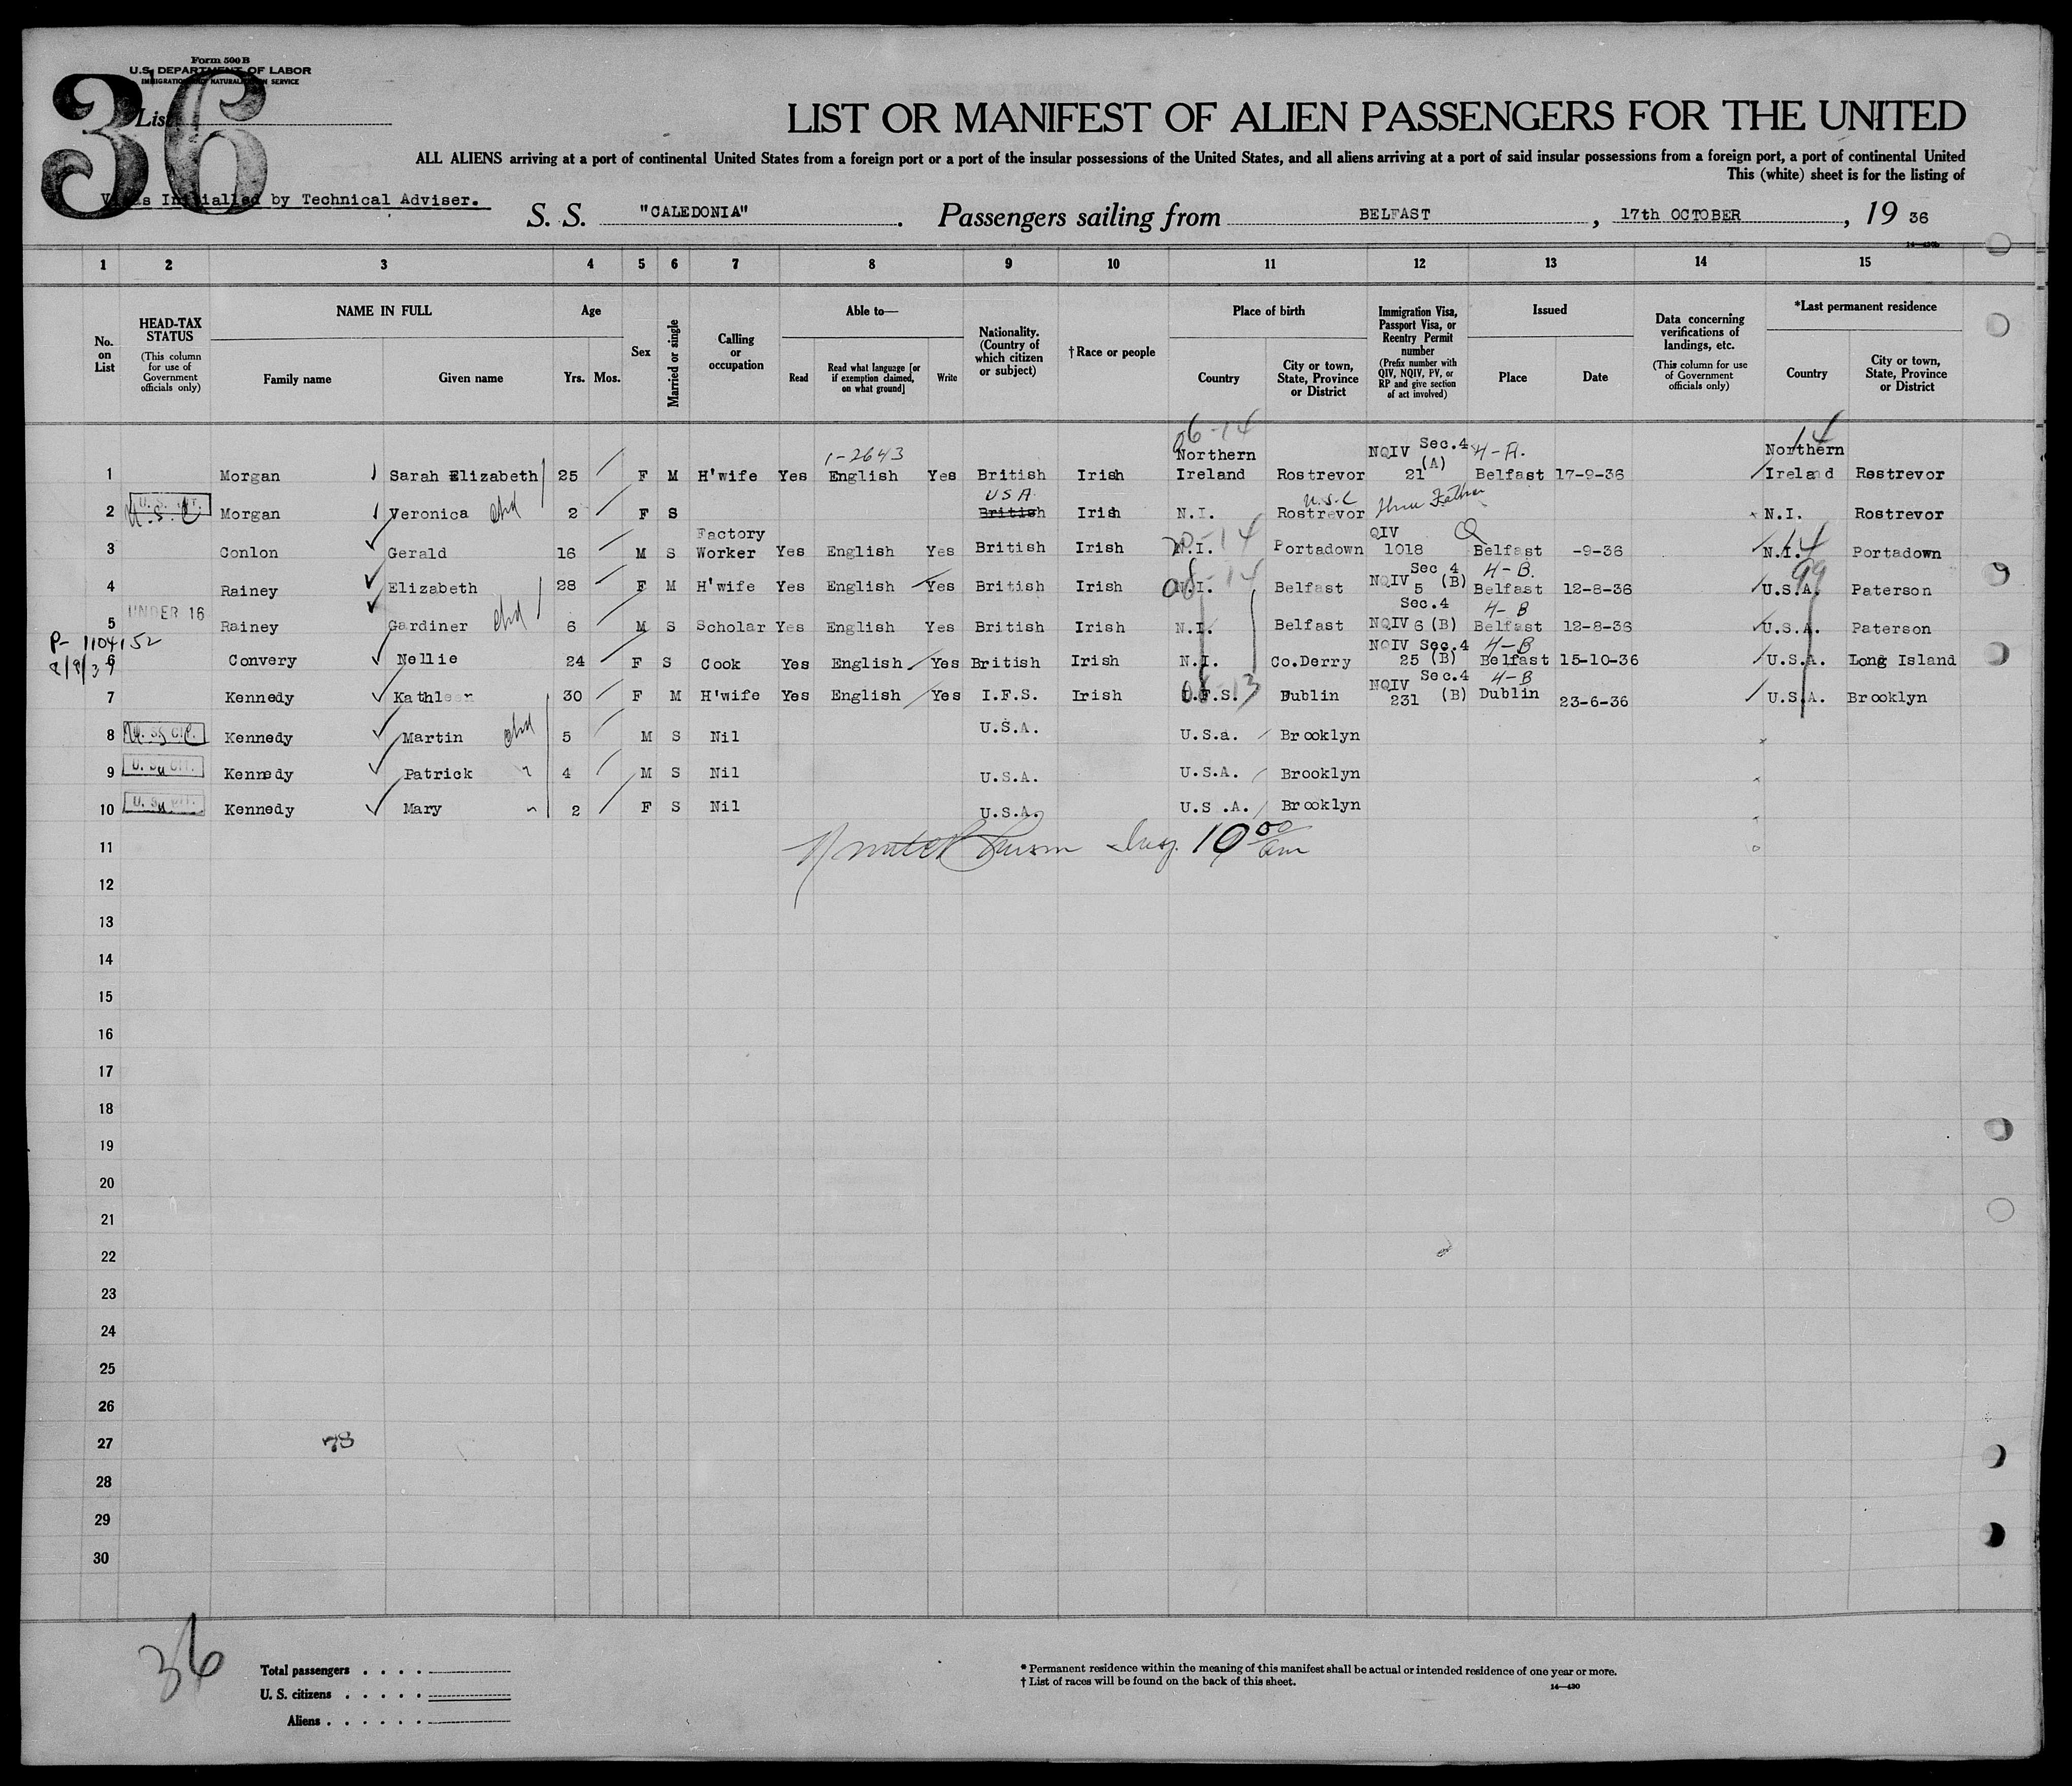 Form 500 B
U.S. DEPARTMENT OF LABOR
IMMIGRATION AND NATURALIZATION SERVICE
36
List
LIST OR MANIFEST OF ALIEN PASSENGERS FOR THE UNITED
ALL ALIENS arriving at a port of continental United States from a foreign port or a port of the insular possessions of the United States, and all aliens arriving at a port of said insular possessions from a foreign port, a port of continental United
This (white) sheet is for the listing of
Visas Initialled by Technical Adviser.
S. S. "CALEDONIA". Passengers sailing from BELFAST, 17th OCTOBER, 19 36
14—430b
1 2 3 4 5 6 7 8 9 10 11 12 13 14 15
No. on List
HEAD-TAX STATUS
(This column for use of Government officials only)
NAME IN FULL
Family name Given name
Age
Yrs. Mos.
Sex
Married or single
Calling or occupation
Able to—
Read Read what language [or if exemption claimed, on what ground] Write
Nationality. (Country of which citizen or subject)
†Race or people
Place of birth
Country City or town, State, Province or District
Immigration Visa, Passport Visa, or Reentry Permit number
(Prefix number with QIV, NQIV, PV, or RP and give section of act involved)
Issued
Place Date
Data concerning verifications of landings, etc.
(This column for use of Government officials only)
*Last permanent residence
Country City or town, State, Province or District
06-14 14
1-2643 Northern NQIV Sec.4 4-A. Northern
1 Morgan Sarah Elizabeth 25 F M H'wife Yes English Yes British Irish Ireland Rostrevor 21 (A) Belfast 17-9-36 Ireland Rostrevor
U.S. CIT. USA U.S.C
2 U.S.C Morgan Veronica chd 2 F S British Irish N.I. Rostrevor thru Father N.I. Rostrevor
Factory 14 QIV Q 14
3 Conlon Gerald 16 M S Worker Yes English Yes British Irish N.I. Portadown 1018 Belfast -9-36 N.I. Portadown
08-14 Sec 4 4-B. 99
4 Rainey Elizabeth 28 F M H'wife Yes English Yes British Irish N.I. Belfast NQIV 5 (B) Belfast 12-8-36 U.S.A. Paterson
UNDER 16 Sec.4 4-B
5 Rainey Gardiner chd 6 M S Scholar Yes English Yes British Irish N.I. Belfast NQIV 6 (B) Belfast 12-8-36 U.S.A. Paterson
P- 1104152 NQIV Sec.4 4-B
6 Convery Nellie 24 F S Cook Yes English Yes British Irish N.I. Co.Derry 25 (B) Belfast 15-10-36 U.S.A. Long Island
NQIV Sec.4 4-B
7 Kennedy Kathleen 30 F M H'wife Yes English Yes I.F.S. Irish I.F.S. Dublin 231 (B) Dublin 23-6-36 U.S.A. Brooklyn
8 U. S. CIT. Kennedy Martin chd 5 M S Nil U.S.A. U.S.a. Brooklyn
9 U. S. CIT. Kennedy Patrick " 4 M S Nil U.S.A. U.S.A. Brooklyn
10 U. S. CIT. Kennedy Mary " 2 F S Nil U.S.A. U.S .A. Brooklyn
11 Insp. 10 00 am
12
13
14
15
16
17
18
19
20
21
22
23
24
25
26
27
28
29
30
36
Total passengers . . . .
U. S. citizens . . . . .
Aliens . . . . . .
* Permanent residence within the meaning of this manifest shall be actual or intended residence of one year or more.
† List of races will be found on the back of this sheet.
14—430